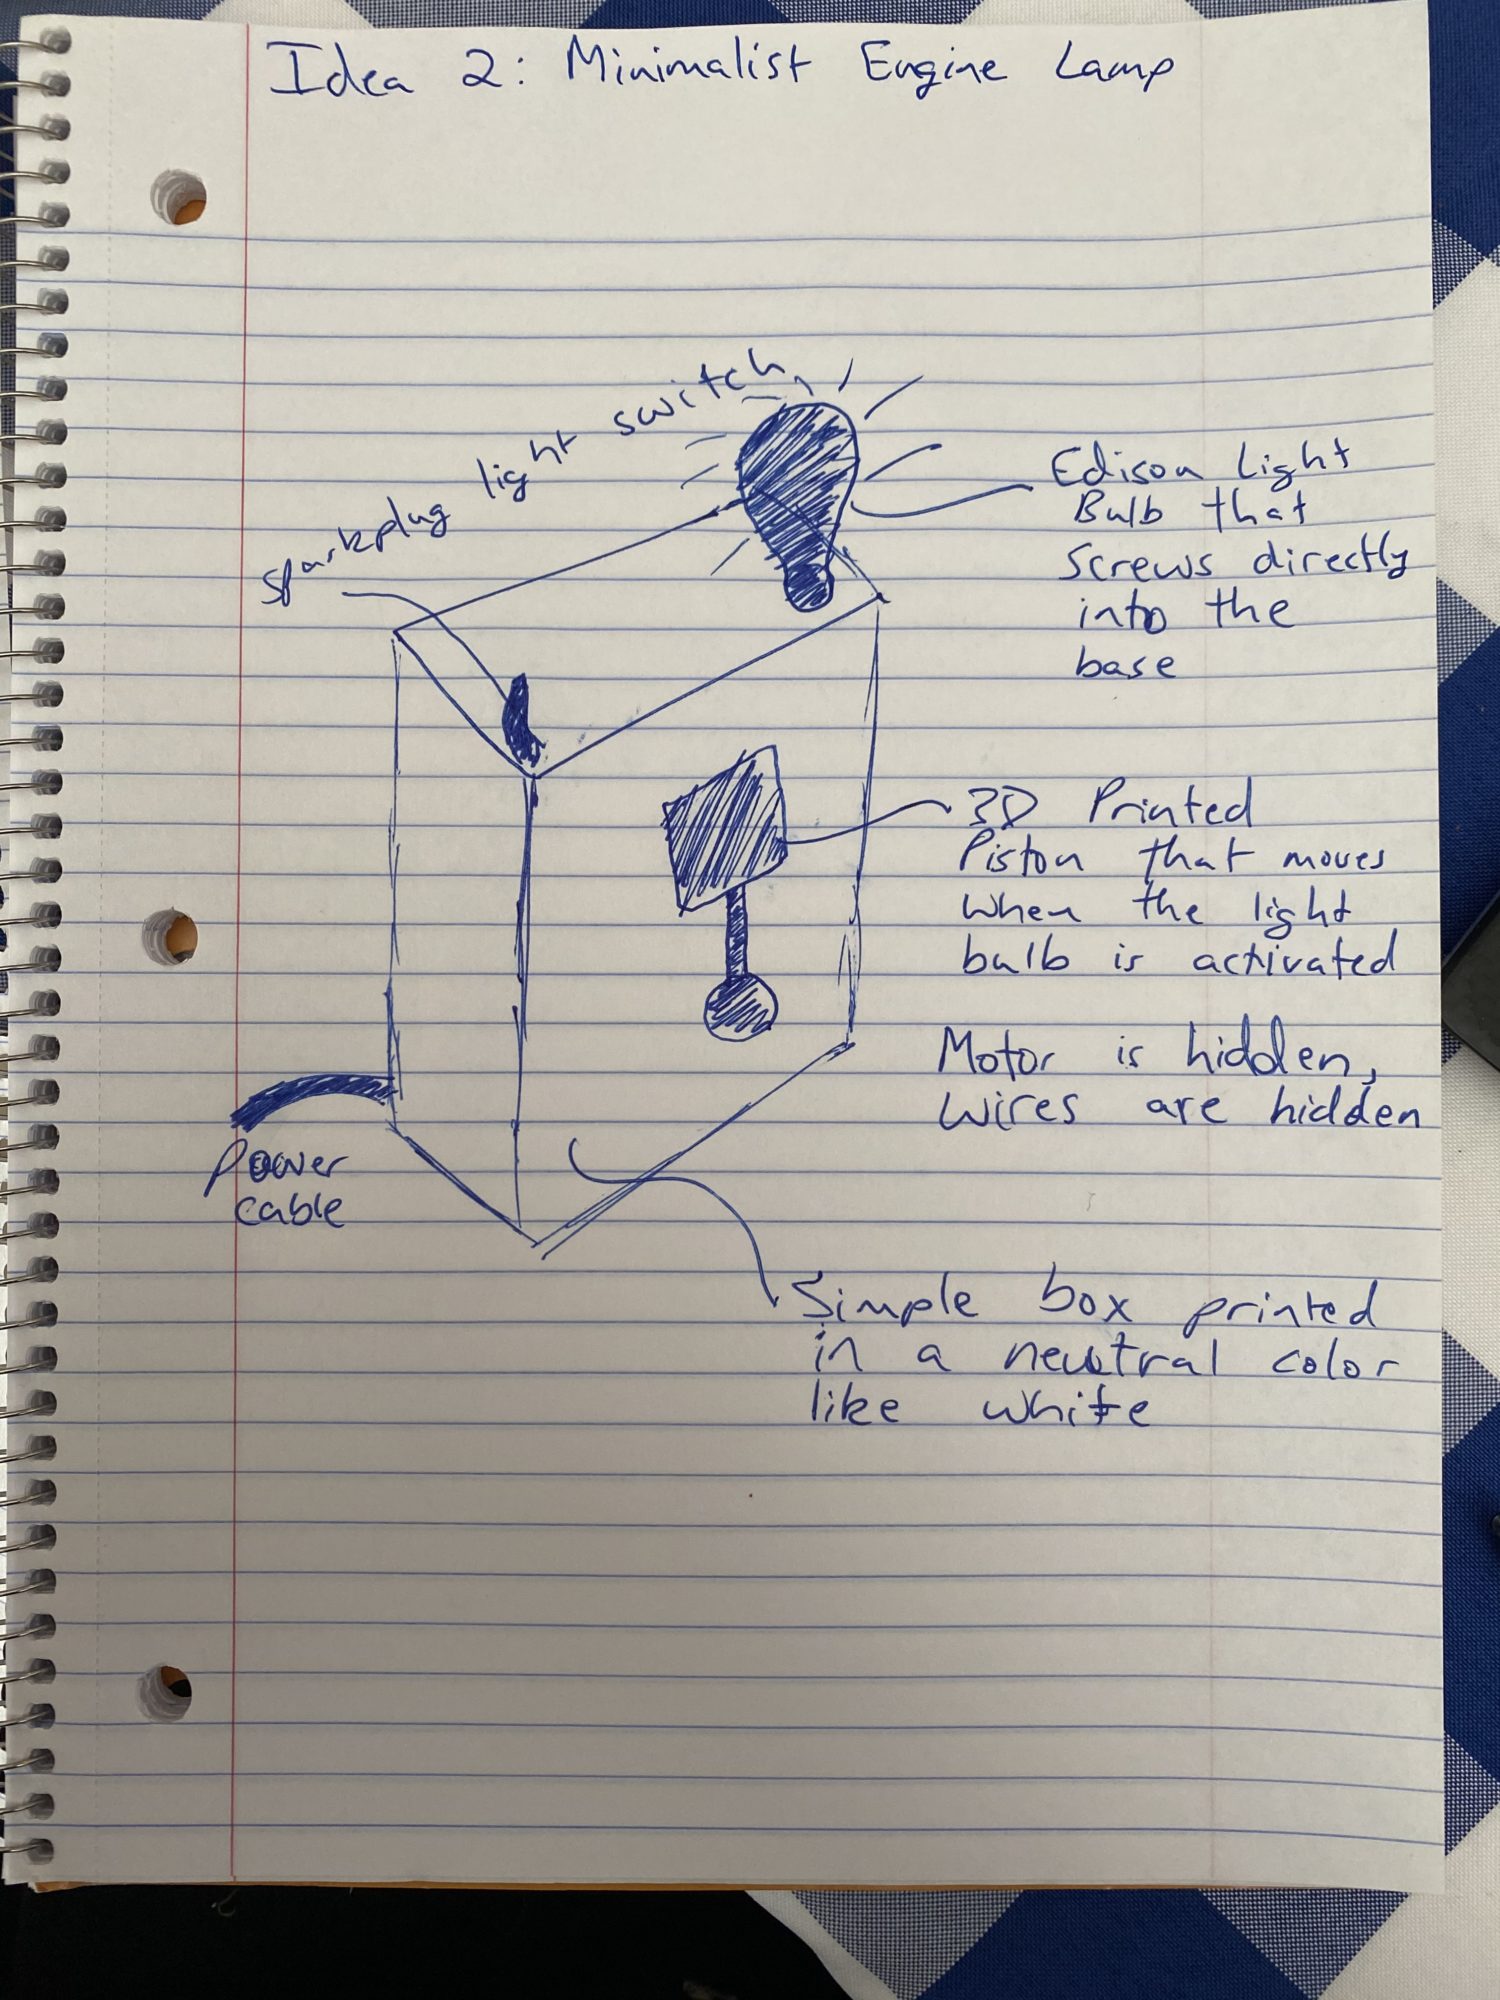 Idea 2: Minimalist Engine Lamp
Sparkplug light switch
Edison Light
Bulb that
Screws directly
into the
base
3D Printed
Piston that moves
when the light
bulb is activated
Motor is hidden,
wires are hidden
Power
cable
Simple box printed
in a neutral color
like white